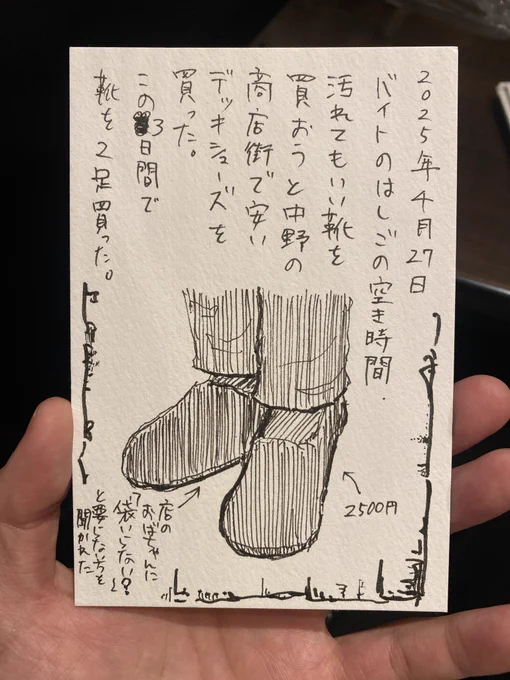 2025年4月27日
バイトのはしごの空き時間.
汚れてもいい靴を
買おうと中野の
商店街で安い
デッキシューズを
買った。
この3日間で
靴を2足買った。
2500円
店の
おばちゃんに
「袋いらない?